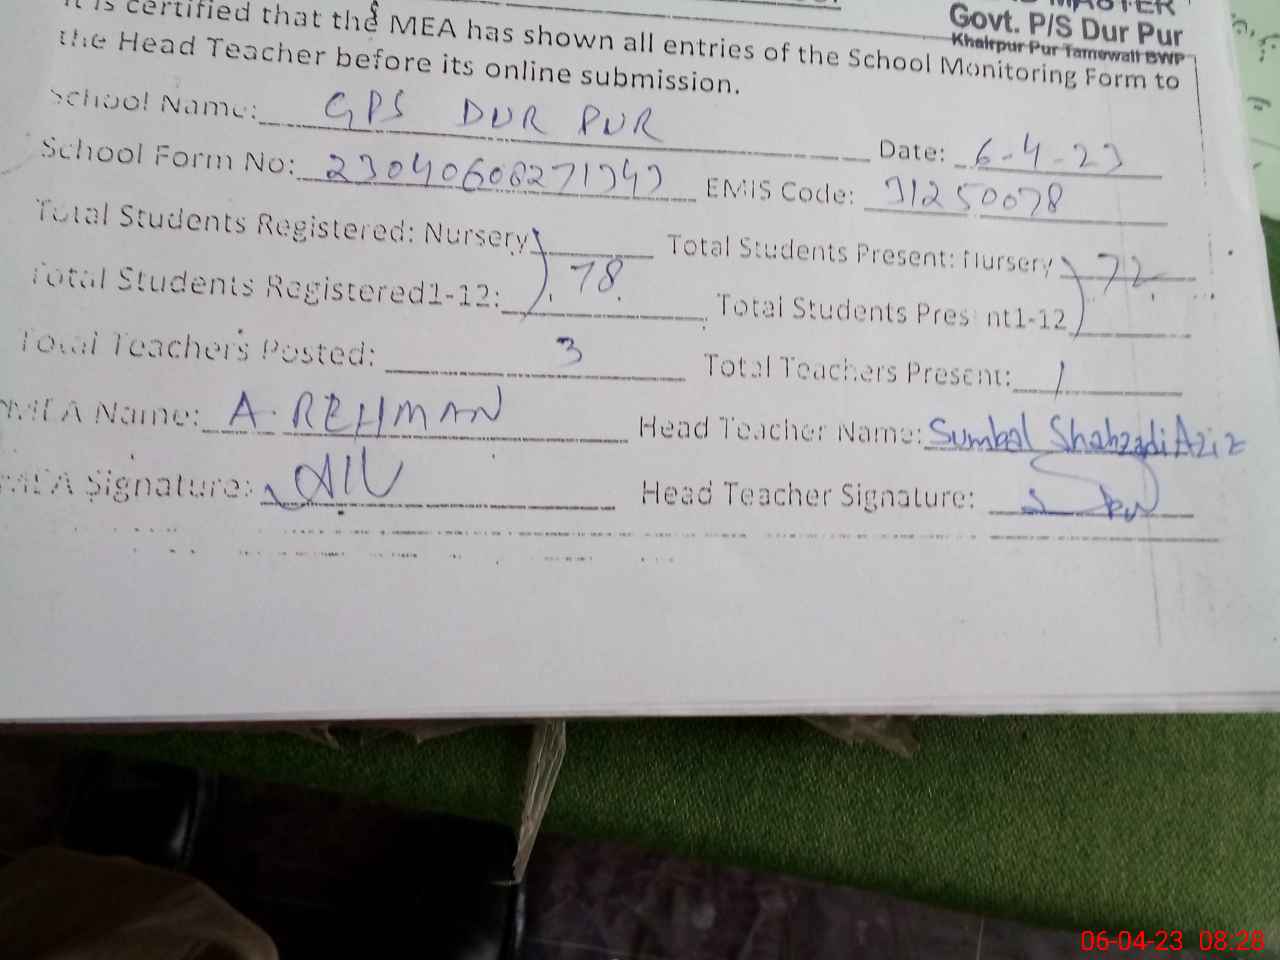 MASTER
Govt. P/S Dur Pur
Khairpur Pur Tamewali BWP
It is certified that the MEA has shown all entries of the School Monitoring Form to
the Head Teacher before its online submission.
School Name: GPS DUR PUR
Date: 6-4-23
School Form No: EMIS Code: 31250078
Total Students Registered: Nursery Total Students Present: Nursery
78 72
Total Students Registered1-12: Total Students Present1-12
Total Teachers Posted: 3 Total Teachers Present: 1
MEA Name: A. REHMAN Head Teacher Name: Sumbal Shahzadi Aziz
MEA Signature: Head Teacher Signature:
06-04-23 08:28